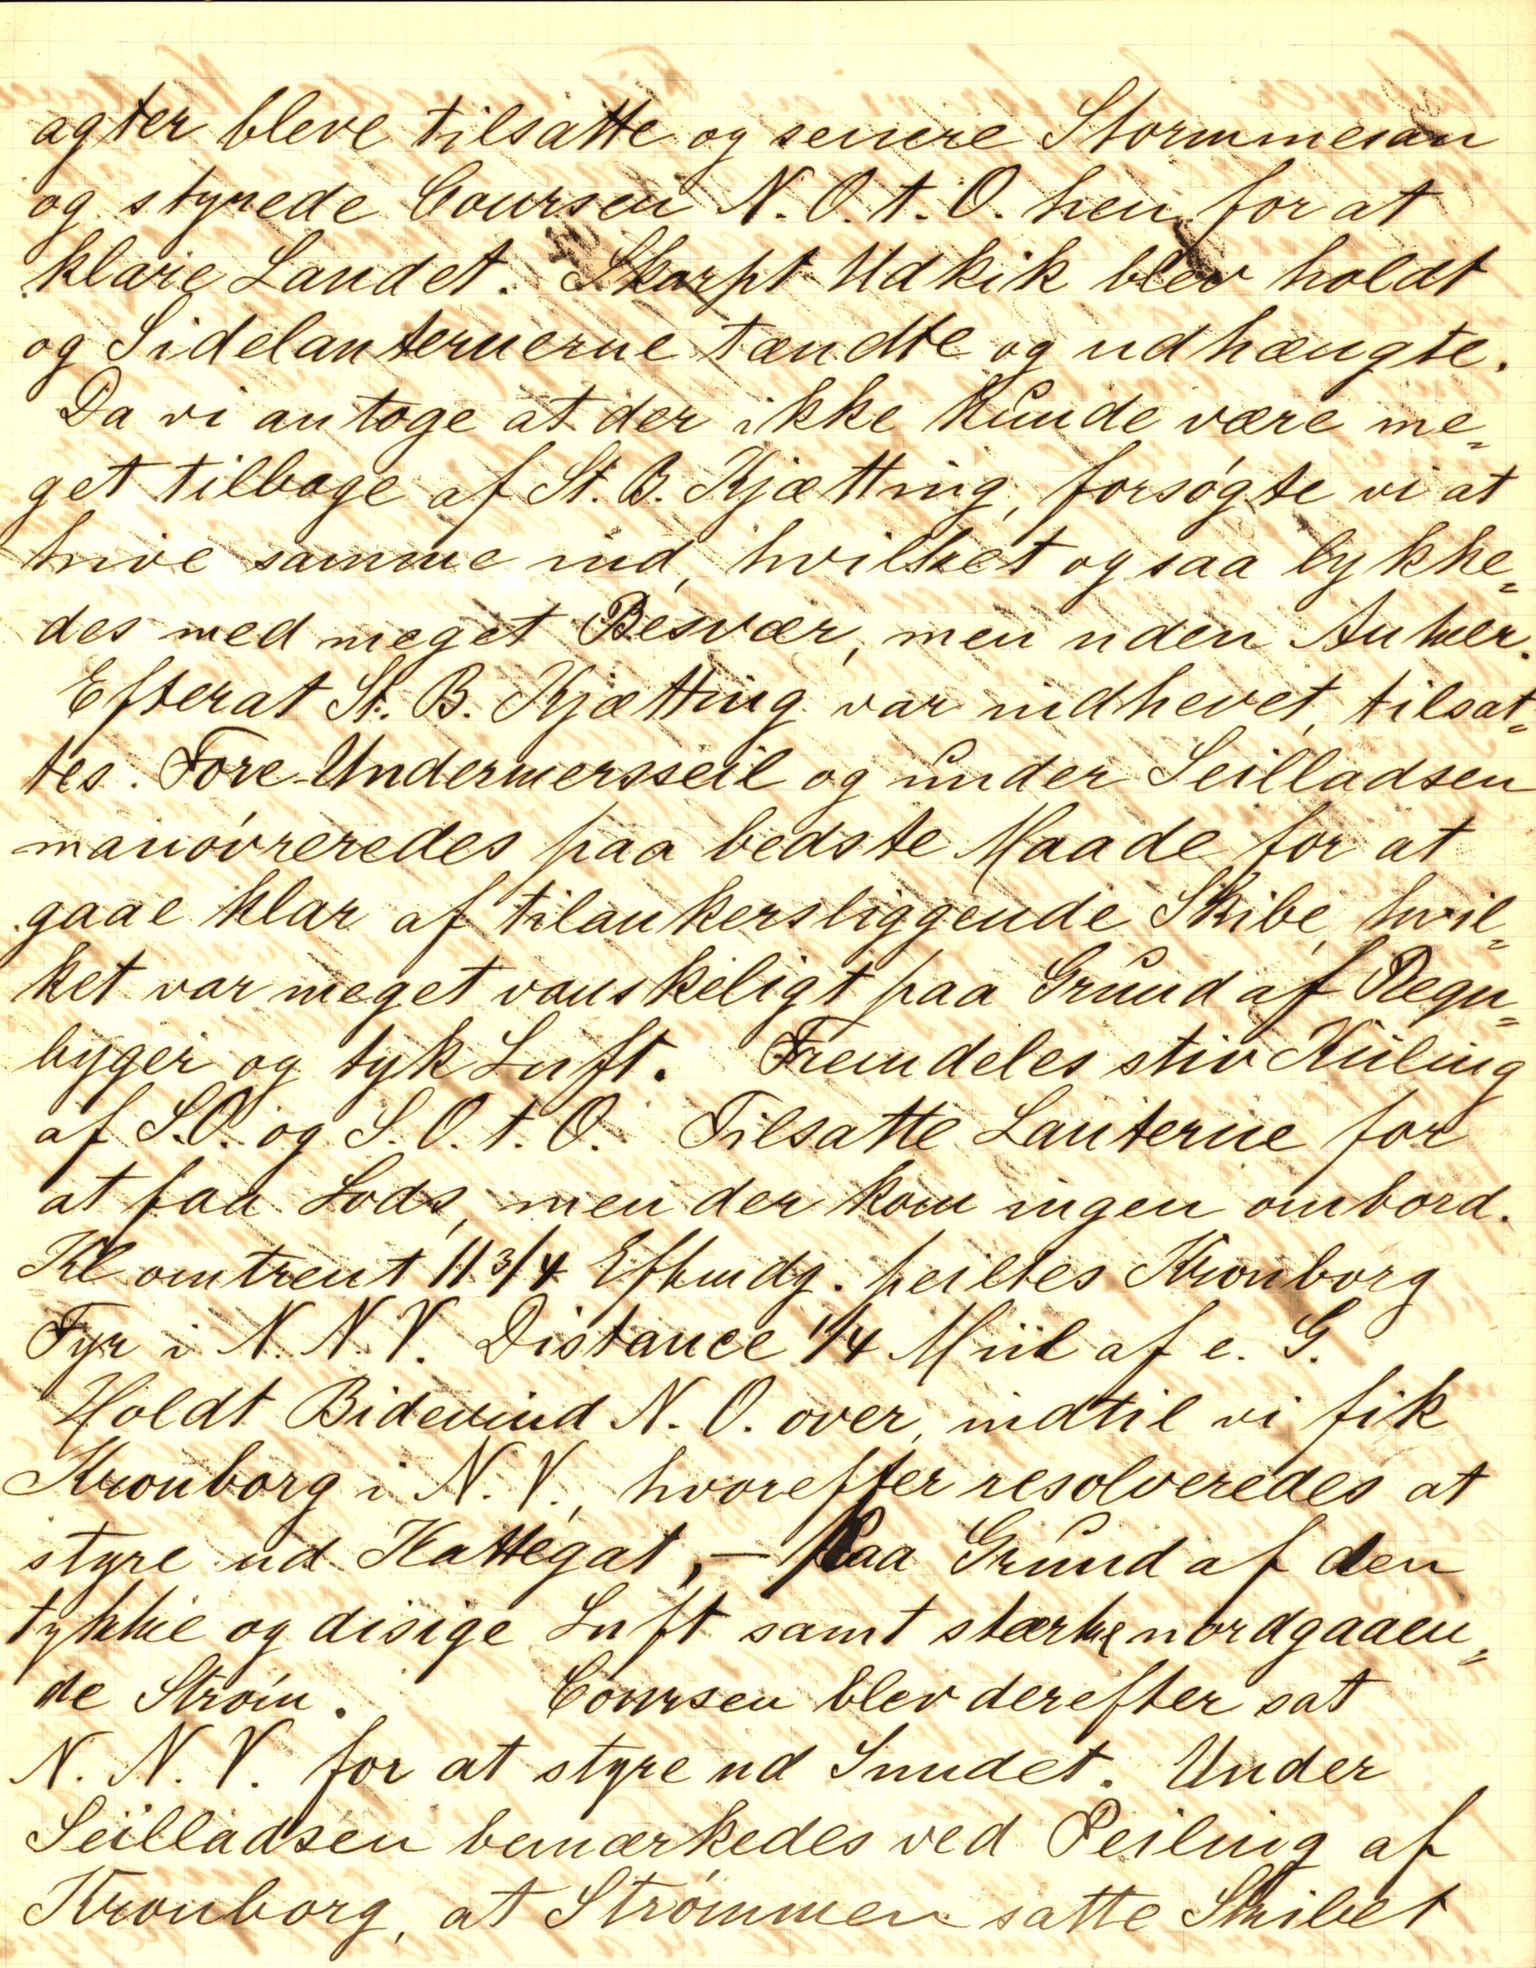 agter bleve tilsatte og senere Stormmesan
og styrede Coursen N. O. t. O. hen for at
klare Landet. Skarpt Udkik blev holdt
og Sidelanternerne tændte og udhængte.
Da vi antoge at der ikke kunde være me=
get tilbage af St. B. Kjætting, forsøgte vi at
hive samme ind, hvilket ogsaa lykke=
des med meget Besvær, men uden Anker.
Efterat St. B. Kjætting var indhevet, tilsat=
tes. Fore-Undermersseil og under Seilladsen
manøvreredes paa bedste Maade for at
gaae klar af tilankersliggende Skibe, hvil=
ket var meget vanskeligt paa Grund af Regn=
byger og tyk Luft. Fremdeles stiv Kuling
af S.O. og S. O. t. O. Tilsatte Lanterne for
at faa Lods, men der kom ingen ombord.
Kl omtrent 11 3/4 Eftmdg. peiltes Kronborg
Fyr i N. N. V. Distance 1/4 Miil af e. G.
Holdt Bidevind N. O. over, indtil vi fik
Kronborg i N. V., hvorefter resolveredes at
styre ud Kattegat, — Paa Grund af den
tykke og disige Luft samt stærke nordgaaen=
de Strøm. Coursen blev derefter sat
N. N. V. for at styre ud Sundet. Under
Seilladsen bemærkedes ved Peiling af
Kronborg, at Strømmen satte Skibet